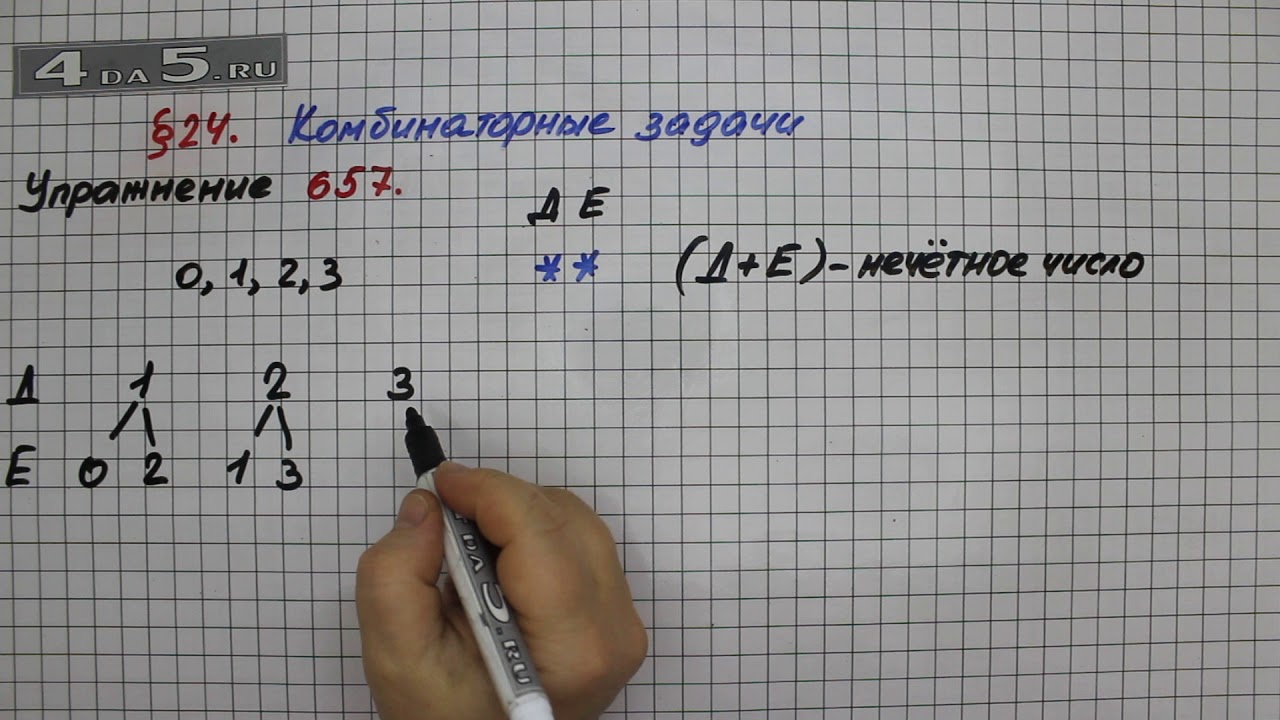 4DA5.RU
§24. Комбинаторные задачи
Упражнение 657.
Д Е
0, 1, 2, 3
** (Д+Е)-нечётное число
Д 1 2 3
Е 0 2 1 3
4DA5.RU